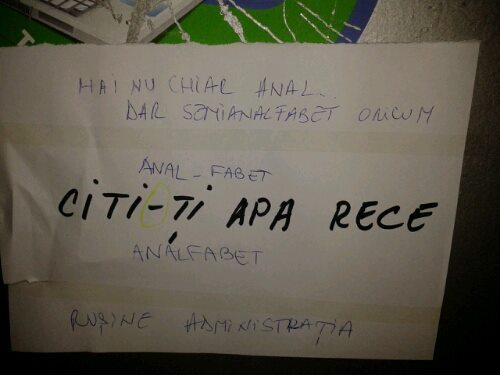 HAI NU CHIAR ANAL..
DAR SEMIANALFABET ORICUM
ANAL-FABET
CITI-ȚI APA RECE
ANALFABET
RUȘINE ADMINISTRAȚIA